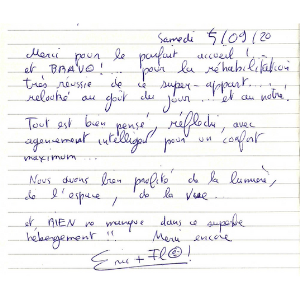 Samedi 5/09/20
Merci pour le parfait accueil !...
et BRAVO !... pour la réhabilitation
très réussie de ce super-appart...
relooké au goût du jour... et au nôtre !
Tout est bien pensé, réfléchi, avec
agencement intelligent pour un confort
maximum...
Nous avons bien profité de la lumière,
de l'espace, de la vue...
et RIEN ne manque dans ce superbe
hébergement !! Merci encore
Eric + Flo !